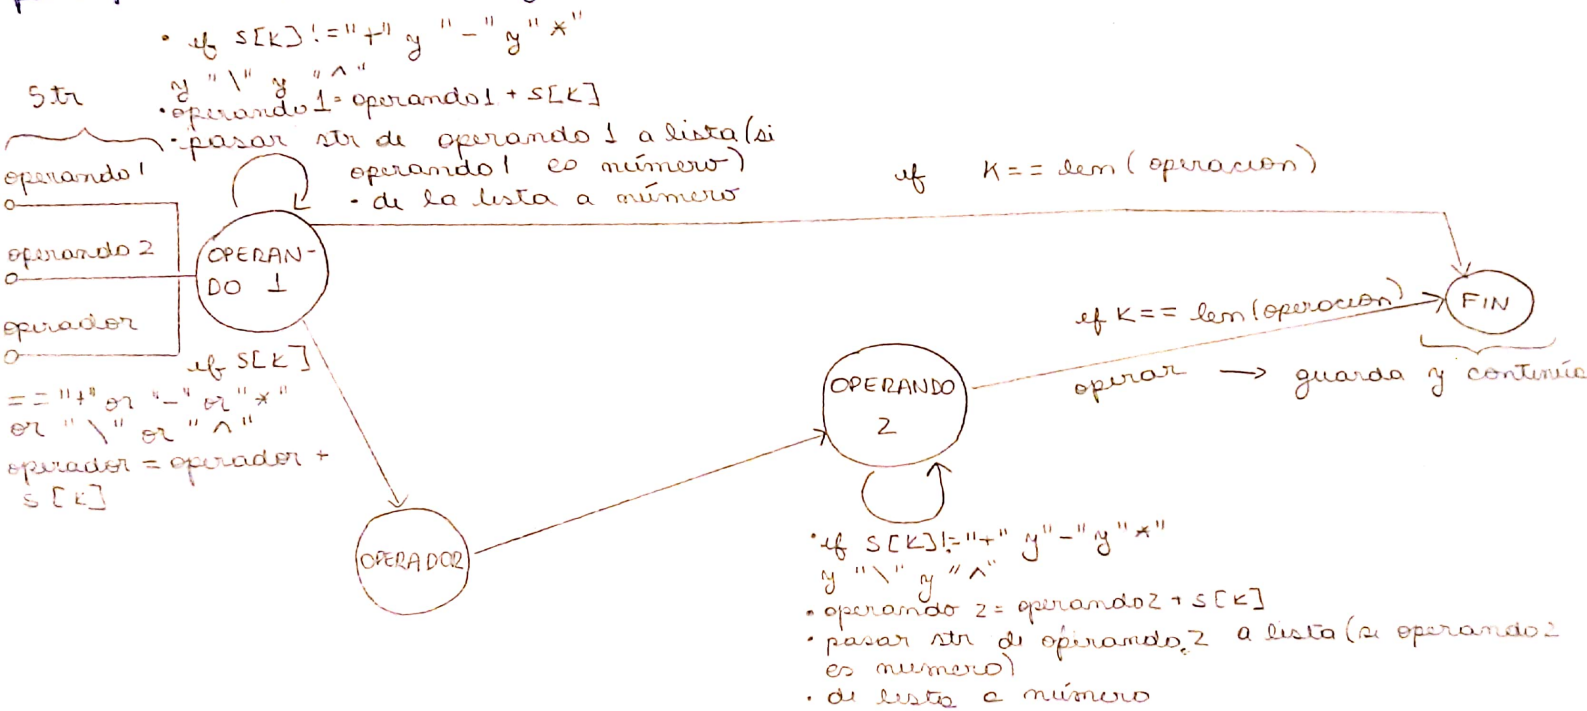 • if s[k]!="+" y "-" y "*"
y "\" y "^"
• operando 1= operando1 + s[k]
• pasar str de operando 1 a lista (si
operando1 es número)
• de la lista a número
Str
operando1
operando 2
operador
OPERAN-
DO 1
if k== len(operacion)
FIN
if k== len(operacion)
operar → guarda y continúa
if s[k]
=="+" or "-" or "*"
or "\" or "^"
operador = operador +
s[k]
OPERADOR
OPERANDO
2
• if s[k]!="+" y "-" y "*"
y "\" y "^"
• operando 2= operando2 + s[k]
• pasar str de operando 2 a lista (si operando2
es numero)
• de lista a número